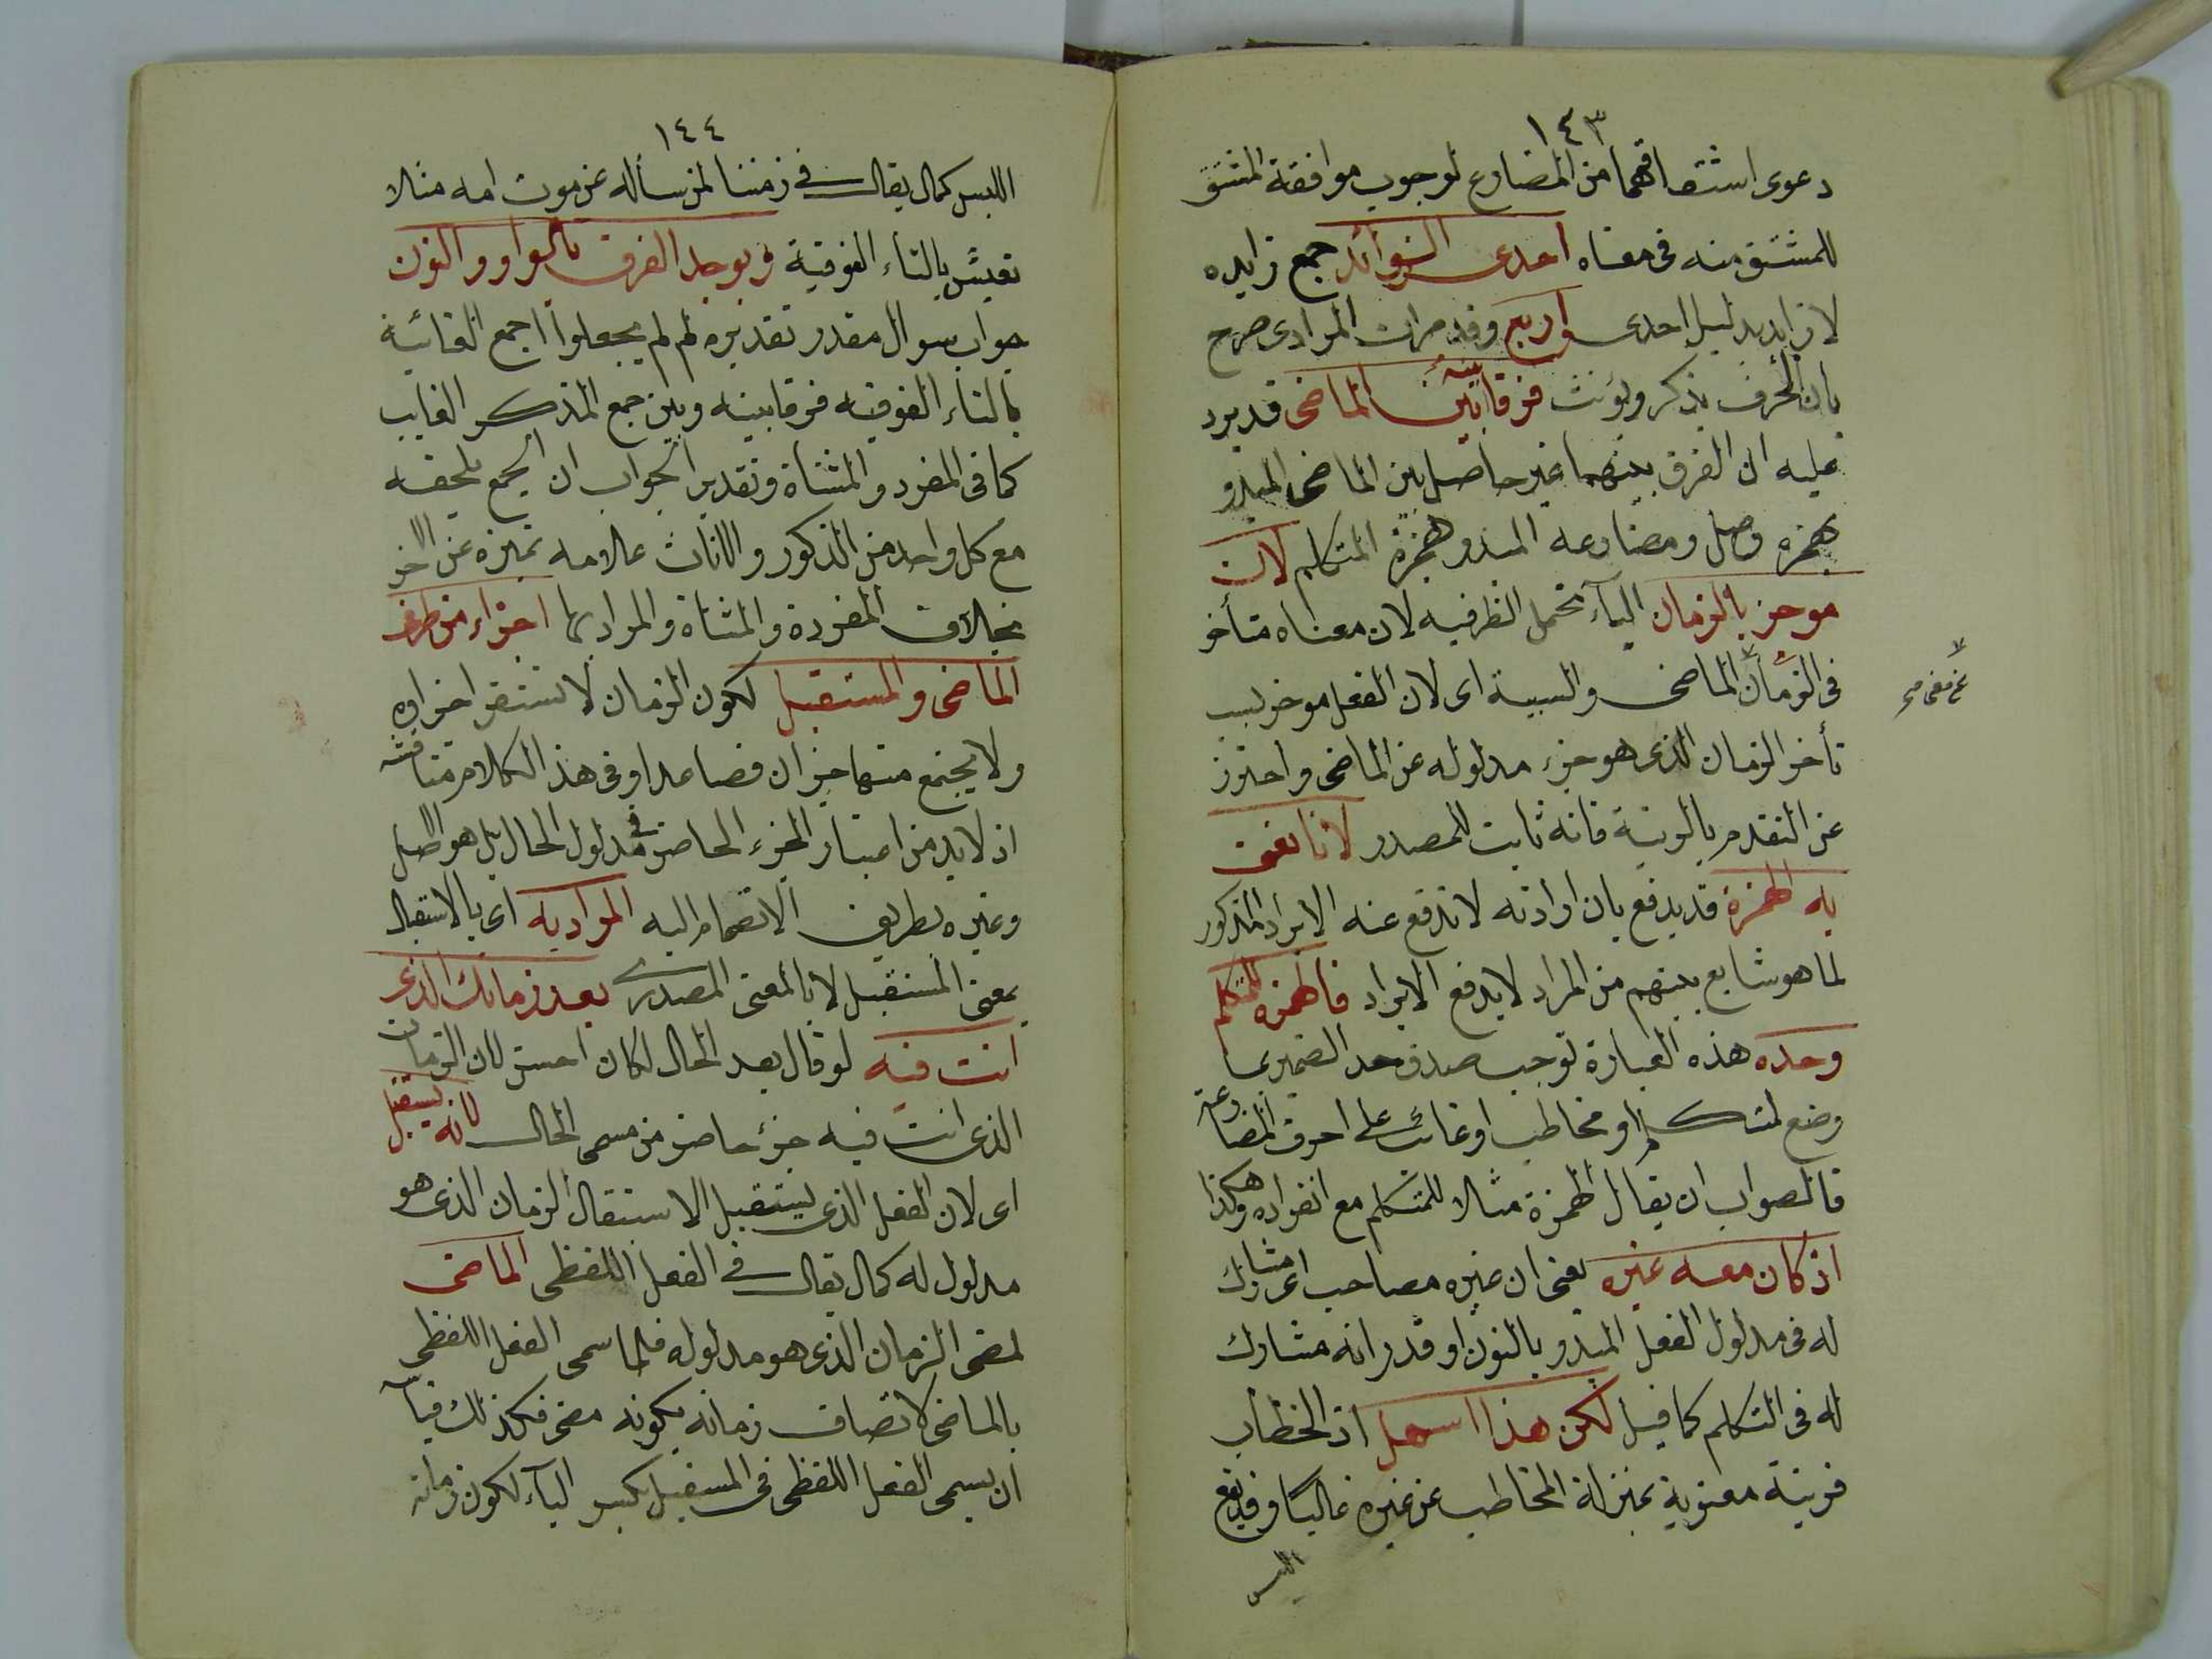 ١٤٣
دعوى اشتقاقهما من المضارع لوجوب موافقة المشتق
للمشتق منه فى معناه احدى الزوائد جمع زايده
لا زايد بدليل احدى واربع وقد مر ان المرادى صرح
بان الحرف يذكر ويؤنث فرقا بينه الماضى قد يرد
عليه ان الفرق بينهما غير حاصل بين الماضى المبدو
بهمزه وصل ومضارعه المبدو بهمزة المتكلم لان
موخر بالزمان الباء تحتمل الظرفيه لان معناه متأخر
فى الزمان الماضى والسببية اى لان الفعل موخر بسبب
تأخر الزمان الذى هو جزء مدلوله عن الماضى واحترز
عن التقدم بالرتبة فانه ثابت للمصدر لانا نعنى
به الهمزة قد يدفع بان ارادته لا تدفع عنه الايراد المذكور
لما هو شايع بينهم من المراد لا يدفع الايراد فالهمزه للمتكلم
وحده هذه العبارة توجب صدق حد الضمير بما
وضع لمتكلم او مخاطب او غائب على احرف المضارعة
فالصواب ان يقال الهمزة مثلا للمتكلم مع انفراده وهكذا
اذ كان معه غيره يعنى ان غيره مصاحب اى مشارك
له فى مدلول الفعل المبدو بالنون او قدر انه مشارك
له فى التكلم كما قيل لكن هذا اسهل اذ الخطاب
قرينة معنوية بمنزلة المخاطب عن غيره غالبا وقد يقع
اللبس
عن معنى صح
١٤٤
اللبس كمال يقال فى زمننا لمن سأله عن موت امه مثلا
تعيش بالتاء الفوقية ويوجد الفرق بالواو والنون
جواب سوال مقدر تقديره لم لم يجعلوا اجمع الغائبة
بالتاء الفوقيه فرقا بينه وبين جمع المذكر الغايب
كما فى المفرد والمثناة وتقدير الجواب ان الجمع تلحقه
مع كل واحد من الذكور والاناث علامه تميزه عن الاخر
بخلاف المفردة والمثناة والمراد بها اجزاء من طرفى
الماضى والمستقبل لكون الزمان لا تستقر اجزاوه
ولا يجتمع منها جزان فصاعدا وفى هذا الكلام مناقشه
اذ لا بد من اعتبار الجزء الحاضر فى مدلول الحال بل هو الاصل
وغيره بطريق الانضمام اليه المراد به اى بالاستقبال
بمعنى المستقبل لا بالمعنى المصدرى بعد زمانك الذى
انت فيه لو قال بعد الحال لكان احسن لان الزمان
الذى انت فيه جزء حاضر من مسمى الحال لانه يستقبل
اى لان الفعل الذى يستقبل الاستقال الزمان الذى هو
مدلول له كمال يقال فى الفعل اللفظى الماضى
لمضى الزمان الذى هو مدلوله فلما سمى الفعل اللفظى
بالماضى لاتصاف زمانه بكونه مضى فكذلك قياسه
ان يسمى الفعل اللفظى فى المستقبل بكسر الباء لكون زمانه